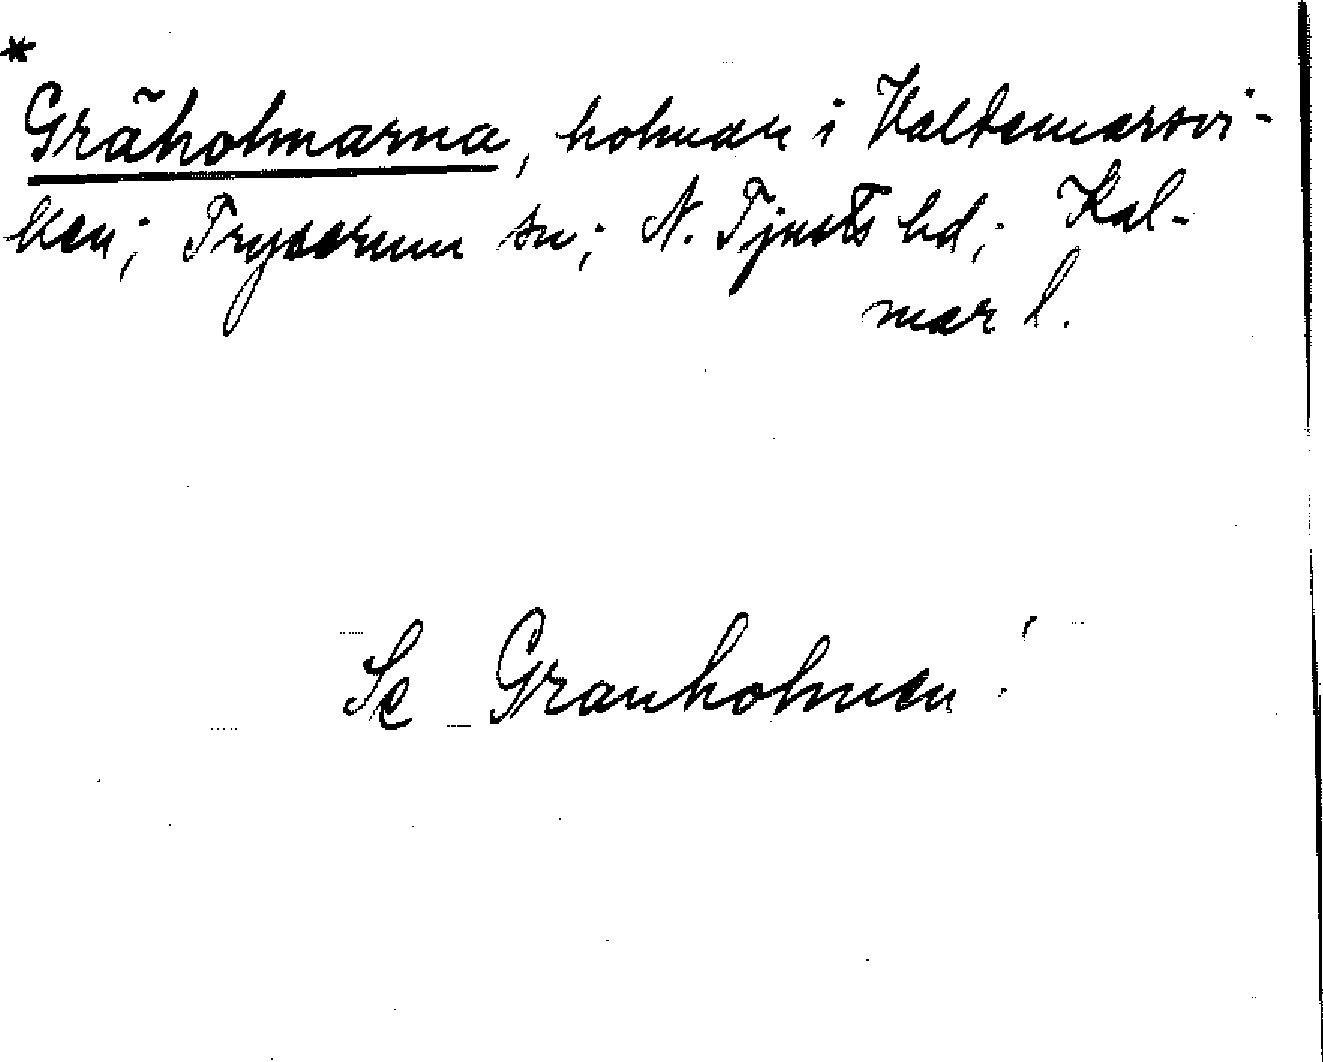 *
Gräholmarna, holmar i Valdemarsvi-
ken; Tryserum sn; N. Tjusts hd; Kal-
mar l.
Se Granholmen!